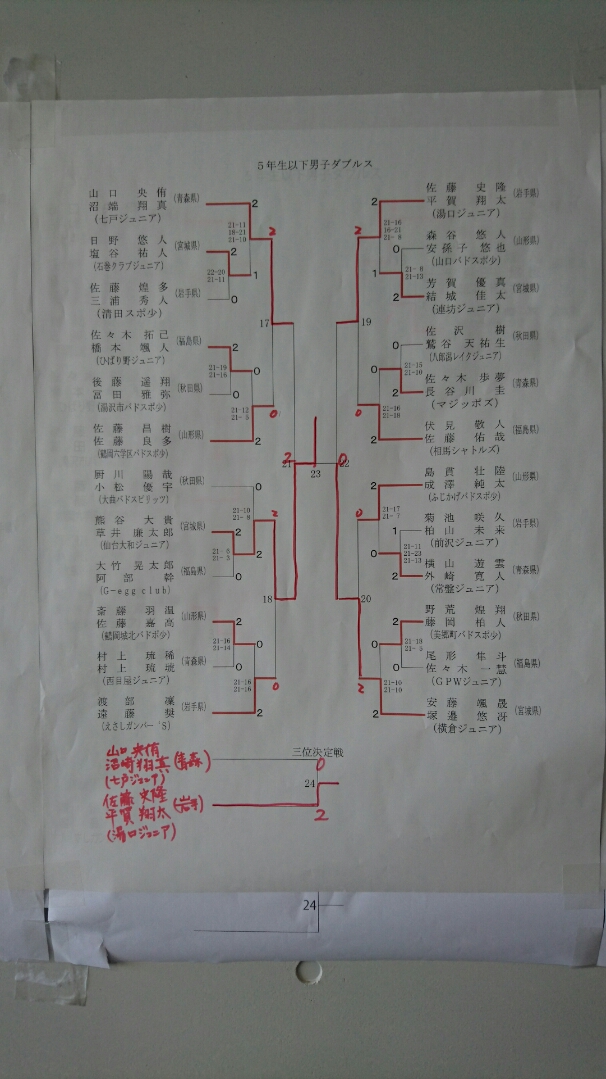 5年生以下男子ダブルス
山口 央侑
沼端 翔真
(青森県)
(七戸ジュニア)
2
日野 悠人
塩谷 祐人
(宮城県)
(石巻クラブジュニア)
2
佐藤 煌多
三浦 秀人
(岩手県)
(清田スポ少)
0
21-11
18-21
21-10
22-20
21-11
1
2
17
佐々木 拓己
橋本 颯人
(福島県)
(ひばり野ジュニア)
2
後藤 遥翔
冨田 雅弥
(秋田県)
(湯沢市バドスポ少)
0
佐藤 昌樹
佐藤 良多
(山形県)
(鶴岡六学区バドスポ少)
2
21-19
21-16
0
21-12
21-5
0
厨川 陽哉
小松 優宇
(秋田県)
(大曲バドスピリッツ)
0
熊谷 大貴
草井 廉太郎
(宮城県)
(仙台大和ジュニア)
2
大竹 晃太郎
阿部 幹
(福島県)
(G-egg club)
0
21-10
21-8
2
2
18
斎藤 羽温
佐藤 嘉高
(山形県)
(鶴岡城北バドスポ少)
2
村上 琉稀
村上 琉琥
(青森県)
(西目屋ジュニア)
0
渡部 凜
遠藤 奨
(岩手県)
(えさしガンバー'S)
2
21-16
21-14
0
21-16
21-16
0
2
21
23
0
22
佐藤 史隆
平賀 翔太
(岩手県)
(湯口ジュニア)
2
森谷 悠人
安孫子 悠也
(山形県)
(山口バドスポ少)
0
芳賀 優真
結城 佳太
(宮城県)
(連坊ジュニア)
2
21-16
16-21
21-8
21-8
21-13
1
2
19
佐沢 樹
鷲谷 天祐生
(秋田県)
(八郎潟レイクジュニア)
0
佐々木 歩夢
長谷川 圭
(青森県)
(マジッポズ)
2
伏見 敬人
佐藤 佑哉
(福島県)
(相馬シャトルズ)
2
21-15
21-10
0
21-16
21-18
0
島貫 壮陸
成澤 純太
(山形県)
(ふじかげバドスポ少)
2
菊池 咲久
柏山 未来
(岩手県)
(前沢ジュニア)
1
横山 遊雲
外崎 寛人
(青森県)
(常盤ジュニア)
2
21-17
21-7
21-11
21-23
21-13
0
0
20
野荒 煌翔
藤岡 柏人
(秋田県)
(美郷町バドスポ少)
2
尾形 隼斗
佐々木 一慧
(福島県)
(GPWジュニア)
0
安藤 颯晟
塚邉 悠冴
(宮城県)
(横倉ジュニア)
2
0
21-10
21-19
2
三位決定戦
山口 央侑
沼端 翔真
(青森)
(七戸ジュニア)
0
24
佐藤 史隆
平賀 翔太
(岩手)
(湯口ジュニア)
2
24